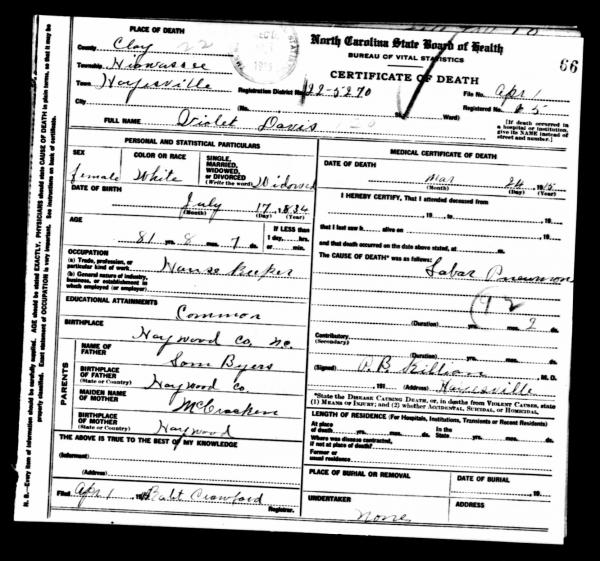 North Carolina State Board of Health
BUREAU OF VITAL STATISTICS
CERTIFICATE OF DEATH
66
PLACE OF DEATH
County Clay 22
Township Hiawassee
Town Hayesville
City
Registration District No. 22-5270
File No. Apr 1
Registered No. 5
(No. St. Ward)
[If death occurred in a hospital or institution, give its NAME instead of street and number.]
FULL NAME Violet Davis
PERSONAL AND STATISTICAL PARTICULARS
SEX
female
COLOR OR RACE
White
SINGLE, MARRIED, WIDOWED, OR DIVORCED (Write the word) Widowed
DATE OF BIRTH
July 17 1834
(Month) (Day) (Year)
AGE
81 yrs. 8 mos. 7 ds.
IF LESS than 1 day, hrs. or min.
OCCUPATION
(a) Trade, profession, or particular kind of work House Keeper
(b) General nature of industry, business, or establishment in which employed (or employer)
EDUCATIONAL ATTAINMENTS
Common
BIRTHPLACE
Haywood Co, NC.
PARENTS
NAME OF FATHER Sam Byers
BIRTHPLACE OF FATHER (State or Country) Haywood Co.
MAIDEN NAME OF MOTHER McCracken
BIRTHPLACE OF MOTHER (State or Country) Haywood
THE ABOVE IS TRUE TO THE BEST OF MY KNOWLEDGE
(Informant)
(Address)
Filed Apr 1 191 Crawford
Registrar.
MEDICAL CERTIFICATE OF DEATH
DATE OF DEATH
Mar 24 1915
(Month) (Day) (Year)
I HEREBY CERTIFY, That I attended deceased from
, 19 , to , 19 ,
that I last saw h alive on , 19 ,
and that death occurred on the date above stated, at m.
The CAUSE OF DEATH* was as follows:
Lobar Pneumon
92
(Duration) yrs. mos. 2 ds.
Contributory
(Secondary)
(Duration) yrs. mos. ds.
(Signed) Killian M. D.
, 191 (Address) Hayesville
*State the DISEASE CAUSING DEATH, or, in deaths from VIOLENT CAUSES, state (1) MEANS OF INJURY; and (2) whether ACCIDENTAL, SUICIDAL, or HOMICIDAL.
LENGTH OF RESIDENCE (For Hospitals, Institutions, Transients or Recent Residents)
At place of death yrs. mos. ds. In the State yrs. mos. ds.
Where was disease contracted, if not at place of death?
Former or usual residence
PLACE OF BURIAL OR REMOVAL
DATE OF BURIAL
, 19
UNDERTAKER
None
ADDRESS
N. B.—Every item of information should be carefully supplied. AGE should be stated EXACTLY. PHYSICIANS should state CAUSE OF DEATH in plain terms, so that it may be properly classified. Exact statement of OCCUPATION is very important. See instructions on back of certificate.